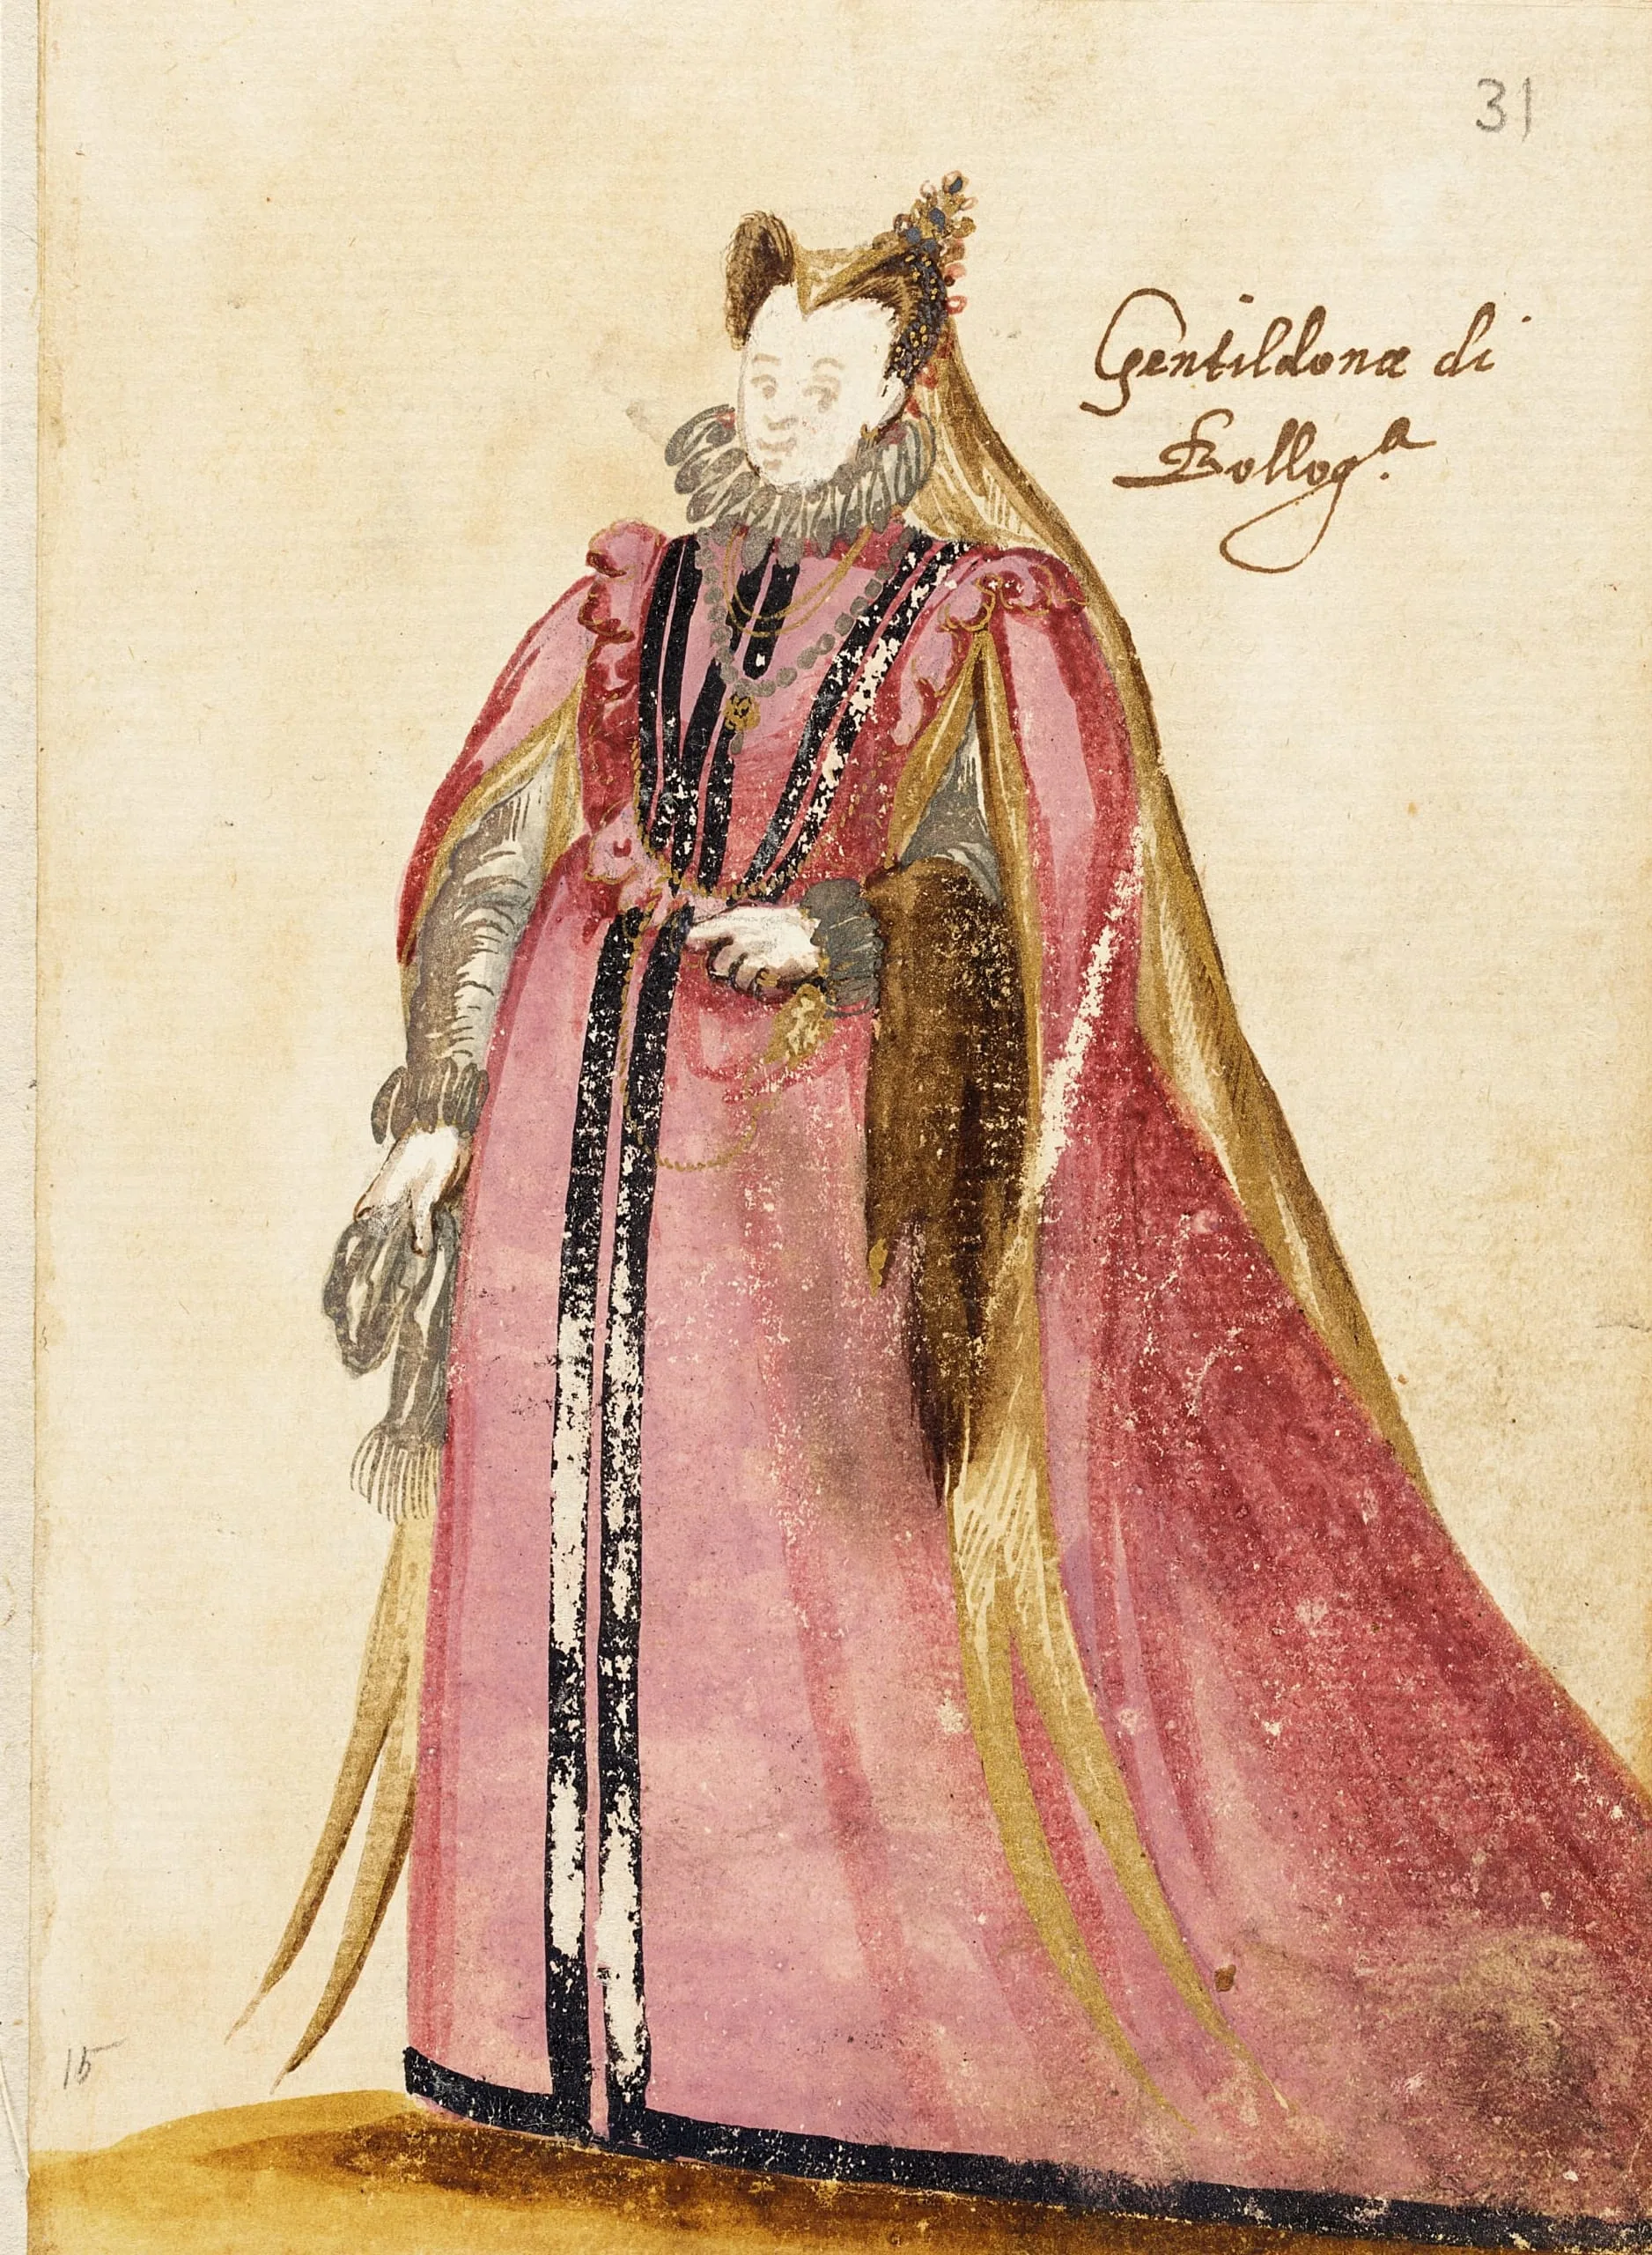 31
Gentildona di
Bollog.ª
15